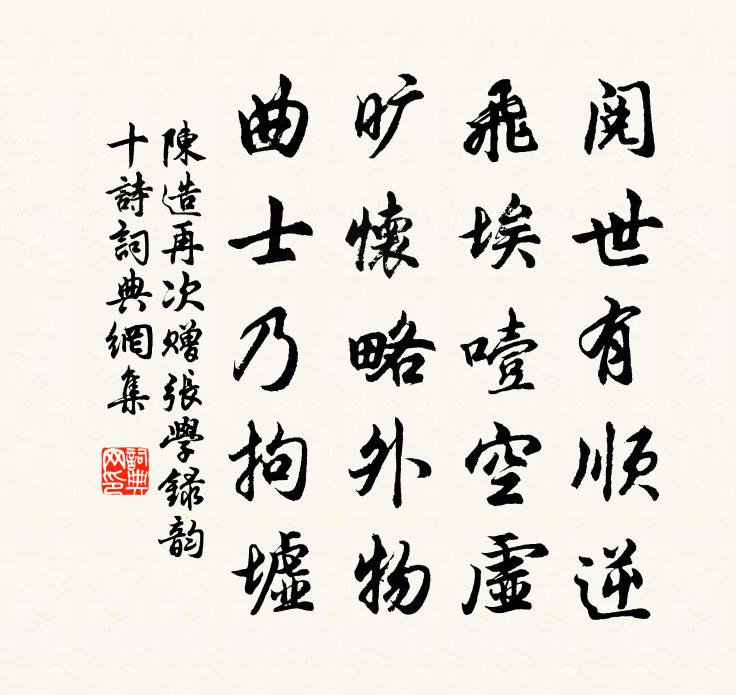 閱世有順逆
飛埃噎空虛
旷懷略外物
曲士乃拘墟
陳造再次赠張學録韵
十詩詞典網集
詞典網印